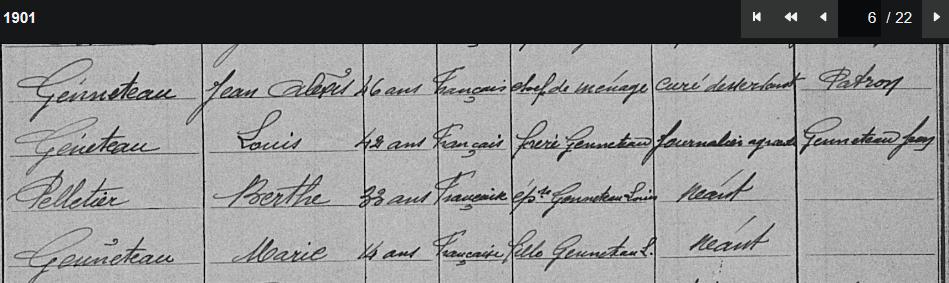 1901
6 / 22
Génneteau Jean Alexis 46 ans Français chef de ménage curé desservant Patron
Géneteau Louis 42 ans Français frère Genneteau Journalier Genneteau
Pelletier Berthe 33 ans Française Genneteau Louis néant
Genneteau Marie 14 ans Française fille Genneteau L. néant